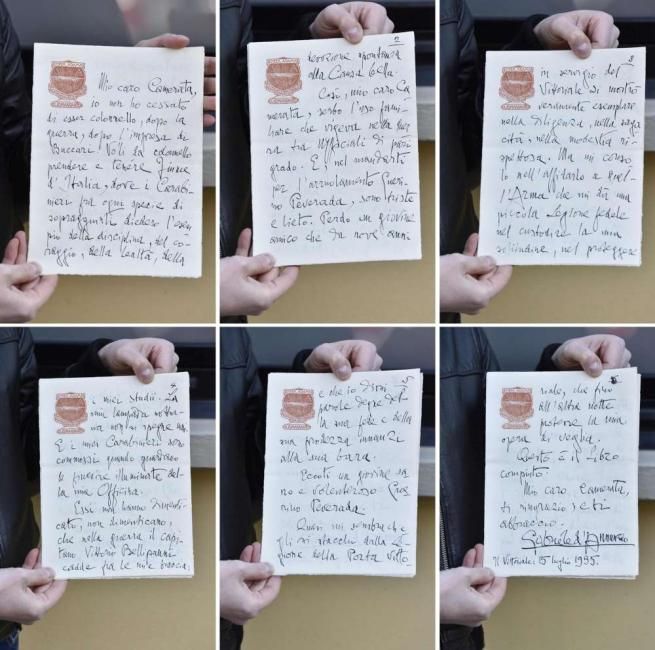 Mio caro Camerata,
io non ho cessato
di esser colonnello, dopo la
guerra, dopo l'impresa di
Buccari. Volli da colonnello
prendere e tenere Fiume
d'Italia, dove i Carabi-
nieri fra ogni specie di
sopraggiunti diedero l'esem
pio della disciplina, del co-
raggio, della lealtà, della
2
devozione spontanea
alla Causa bella.
Così, mio caro Ca
merata, serbo l'uso fami-
liare che vigeva nella guer
ra tra Ufficiali di pari
grado. E, nel mandarti
per l'arrolamento Gueri-
no Peverada, sono triste
e lieto. Perdo un giovine
amico che da nove anni
3
in servigio del
Vittoriale si mostrò
veramente esemplare
nella diligenza, nella saga
cità, nella modestia ri-
spettosa. Ma mi conso
lo nell'affidarlo a quel-
l'Arma che mi dà una
piccola Legione fedele
nel custodire la mia
solitudine, nel proteggere
4
i miei studii. La
mia lampada nottur-
na non si spegne mai.
E i miei Carabinieri sono
commossi quando guardano
le finestre illuminate del-
la mia Officina.
Essi non hanno dimenti-
cato, non dimenticano,
che nella guerra il capi-
tano Vittorio Bellipanni
cadde fra le mie braccia,
5
e che io dissi
parole degne del-
la sua fede e della
sua prodezza innanzi
alla sua bara.
Eccoti un giovine sa
no e volenteroso:
Peverada.
Quasi mi sembra che
egli si stacchi dalla
della Porta
6
riale, che fino
all'altra notte
poterne la mia
opera di veglia.
Questo è il Libro
compiuto.
Mio caro Camerata,
ti ringrazio e ti
abbraccio.
Gabriele d'Annunzio
Il Vittoriale: 15 luglio 1935.